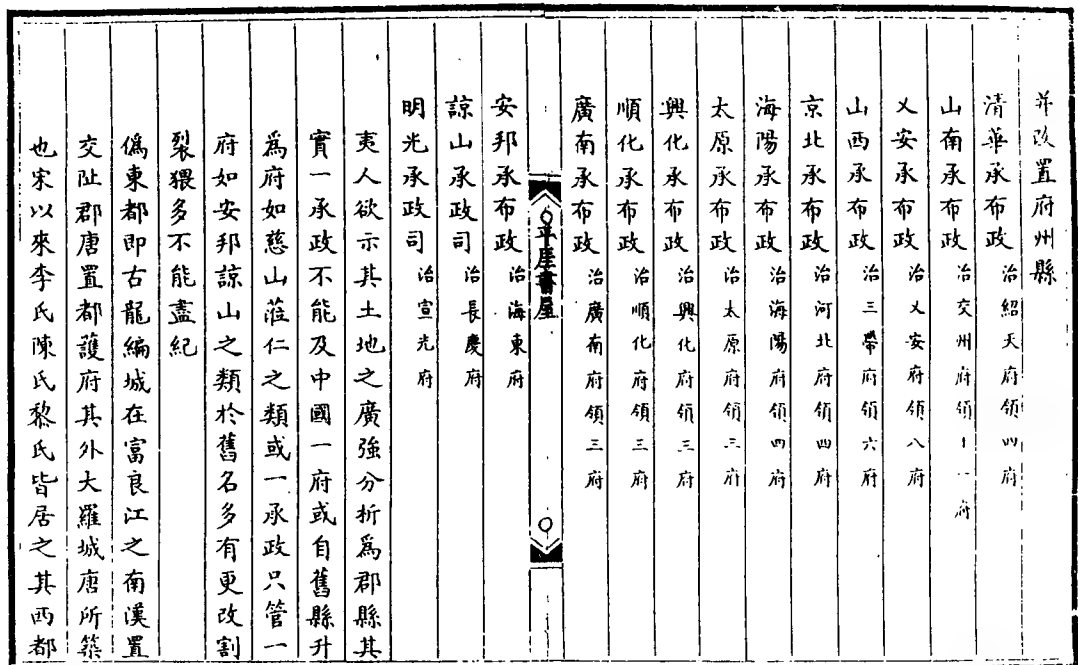 并改置府州縣
清華承布政治紹天府領四府
山南承布政治交州府領十一府
乂安承布政治乂安府領八府
山西承布政治三帶府領六府
京北承布政治河北府領四府
海陽承布政治海陽府領四府
太原承布政治太原府領三府
興化承布政治興化府領三府
順化承布政治順化府領三府
廣南承布政治廣南府領三府
平屋書屋
安邦承布政治海東府
諒山承政司治長慶府
明光承政司治宣光府
夷人欲示其土地之廣強分析爲郡縣其
實一承政不能及中國一府或自舊縣升
爲府如慈山蒞仁之類或一承政只管一
府如安邦諒山之類於舊名多有更改割
裂猥多不能盡紀
僞東都即古龍編城在富良江之南漢置
交阯郡唐置都護府其外大羅城唐所築
也宋以來李氏陳氏黎氏皆居之其西都